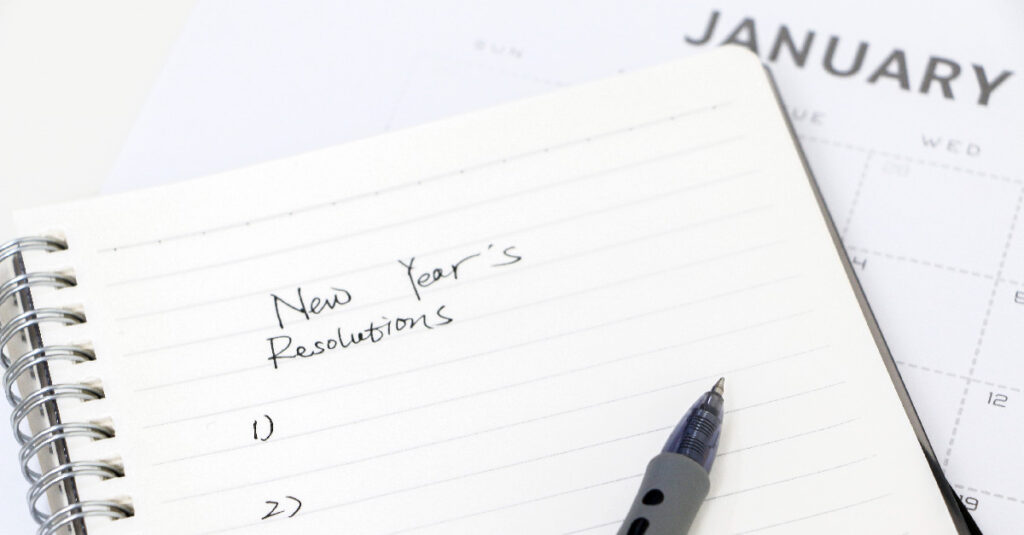 JANUARY
SUN
UE
WED
New Year's
Resolutions
1)
2)
4
12
19